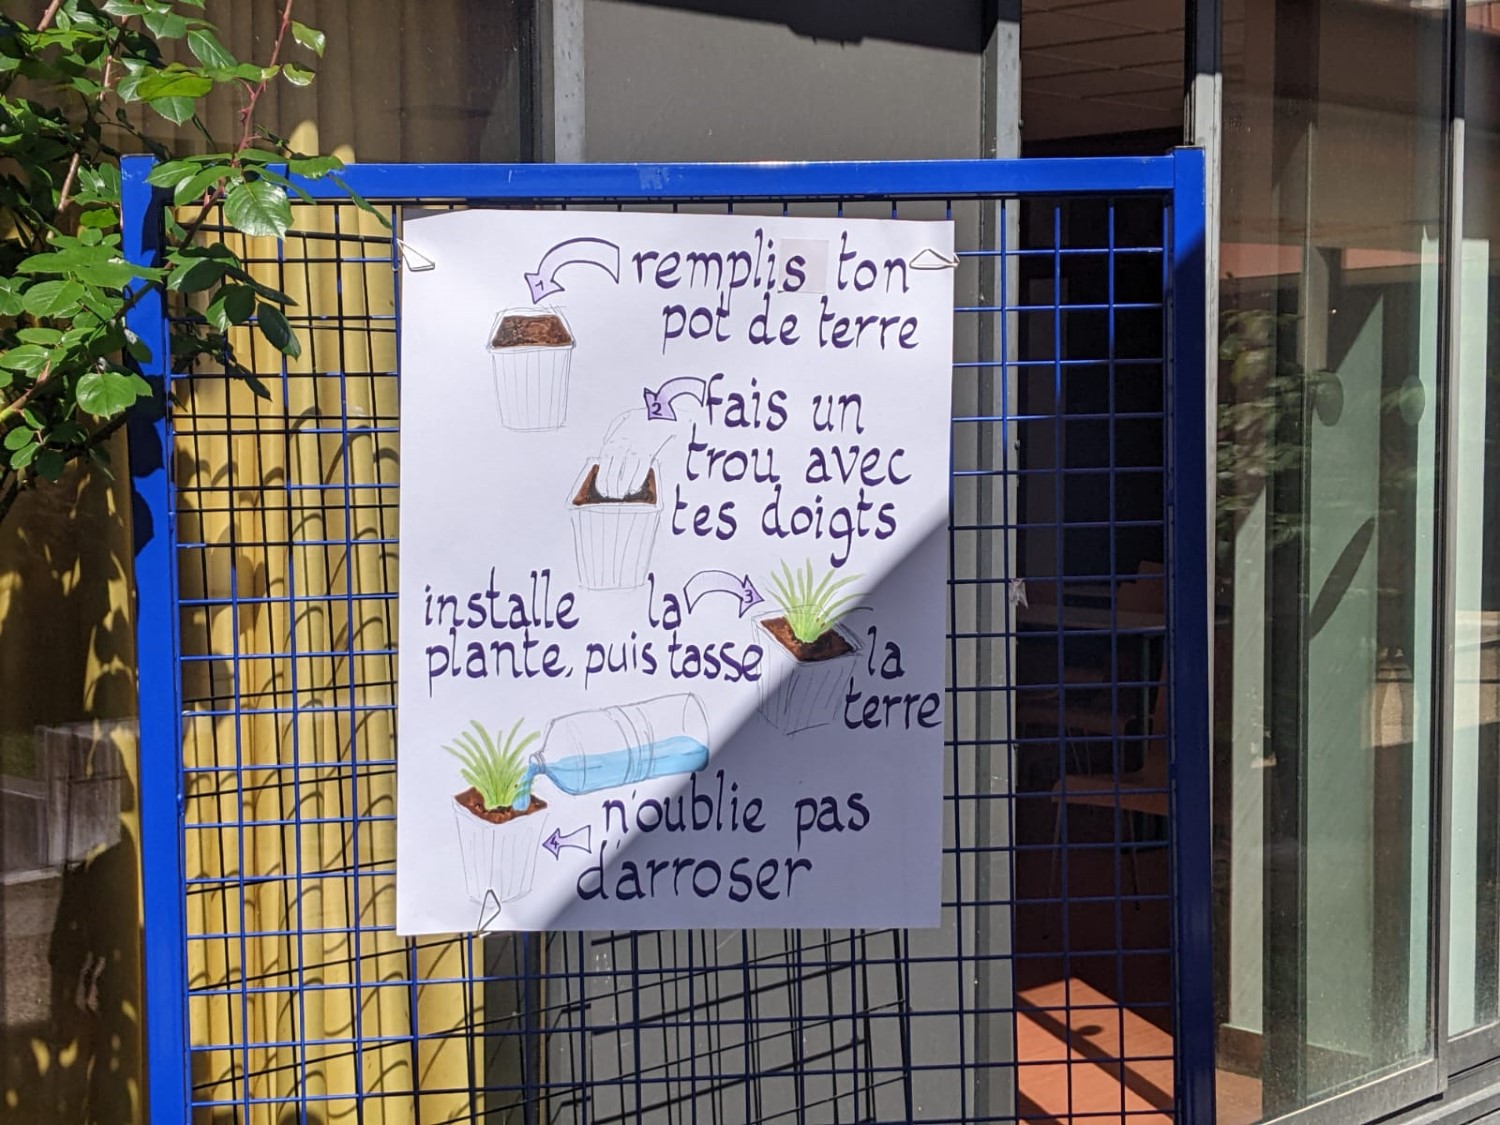 1
remplis ton
pot de terre
2
fais un
trou avec
tes doigts
3
installe la
plante, puis tasse la
terre
4
n'oublie pas
d'arroser